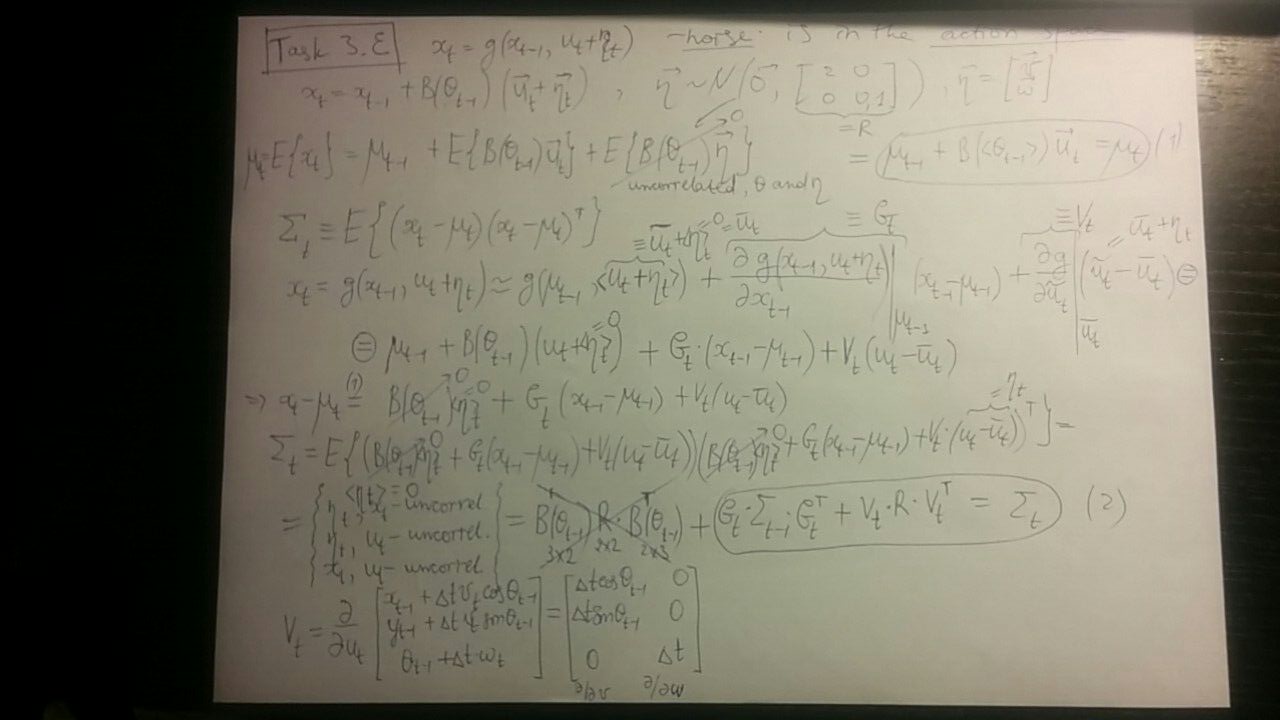 Task 3.E x_t = g(x_{t-1}, u_t + η_t) - noise is in the action space
x_t = x_{t-1} + B(θ_{t-1}) (u̅_t + η⃗_t), η⃗ ~ N(0⃗, [2 0; 0 0,1]), η⃗ = [v; ω]
= R
μ_t = E{x_t} = μ_{t-1} + E{B(θ_{t-1}) u̅_t} + E{B(θ_{t-1}) η⃗} → 0 = μ_{t-1} + B(<θ_{t-1}>) u̅_t = μ_t (1)
uncorrelated, θ and η
Σ_t ≡ E{(x_t - μ_t)(x_t - μ_t)^T} ≡ G_t ≡ V_t
x_t = g(x_{t-1}, u_t + η_t) ≃ g(μ_{t-1}, <u_t + η_t>) + ∂g(x_{t-1}, u_t + η_t)/∂x_{t-1} |_{μ_{t-1}} (x_{t-1} - μ_{t-1}) + ∂g/∂u̅_t |_{u̅_t} (u̅_t - u̅_t) ⊜
⊜ μ_{t-1} + B(θ_{t-1}) (u_t + <η_t>) + G_t · (x_{t-1} - μ_{t-1}) + V_t (u_t - u̅_t)
⇒ x_t - μ_t =(1) B(θ_{t-1}) <η_t> + G_t (x_{t-1} - μ_{t-1}) + V_t (u_t - u̅_t)
= η_t
Σ_t = E{(B(θ_{t-1}) <η_t> + G_t (x_{t-1} - μ_{t-1}) + V_t (u_t - u̅_t)) (B(θ_{t-1}) <η_t> + G_t (x_{t-1} - μ_{t-1}) + V_t · (u_t - u̅_t))^T} =
<η_t> = 0
= { η_t, x_t - uncorrel.
η_t, u_t - uncorrel.
x_t, u_t - uncorrel. } = B(θ_{t-1}) R · B(θ_{t-1})^T + G_t · Σ_{t-1} · G_t^T + V_t · R · V_t^T = Σ_t (2)
3×2 2×2 2×3
V_t = ∂/∂u_t [x_{t-1} + Δt v_t cosθ_{t-1}; y_{t-1} + Δt v_t sinθ_{t-1}; θ_{t-1} + Δt · ω_t] = [Δt cosθ_{t-1} 0; Δt sinθ_{t-1} 0; 0 Δt]
∂/∂v ∂/∂ω